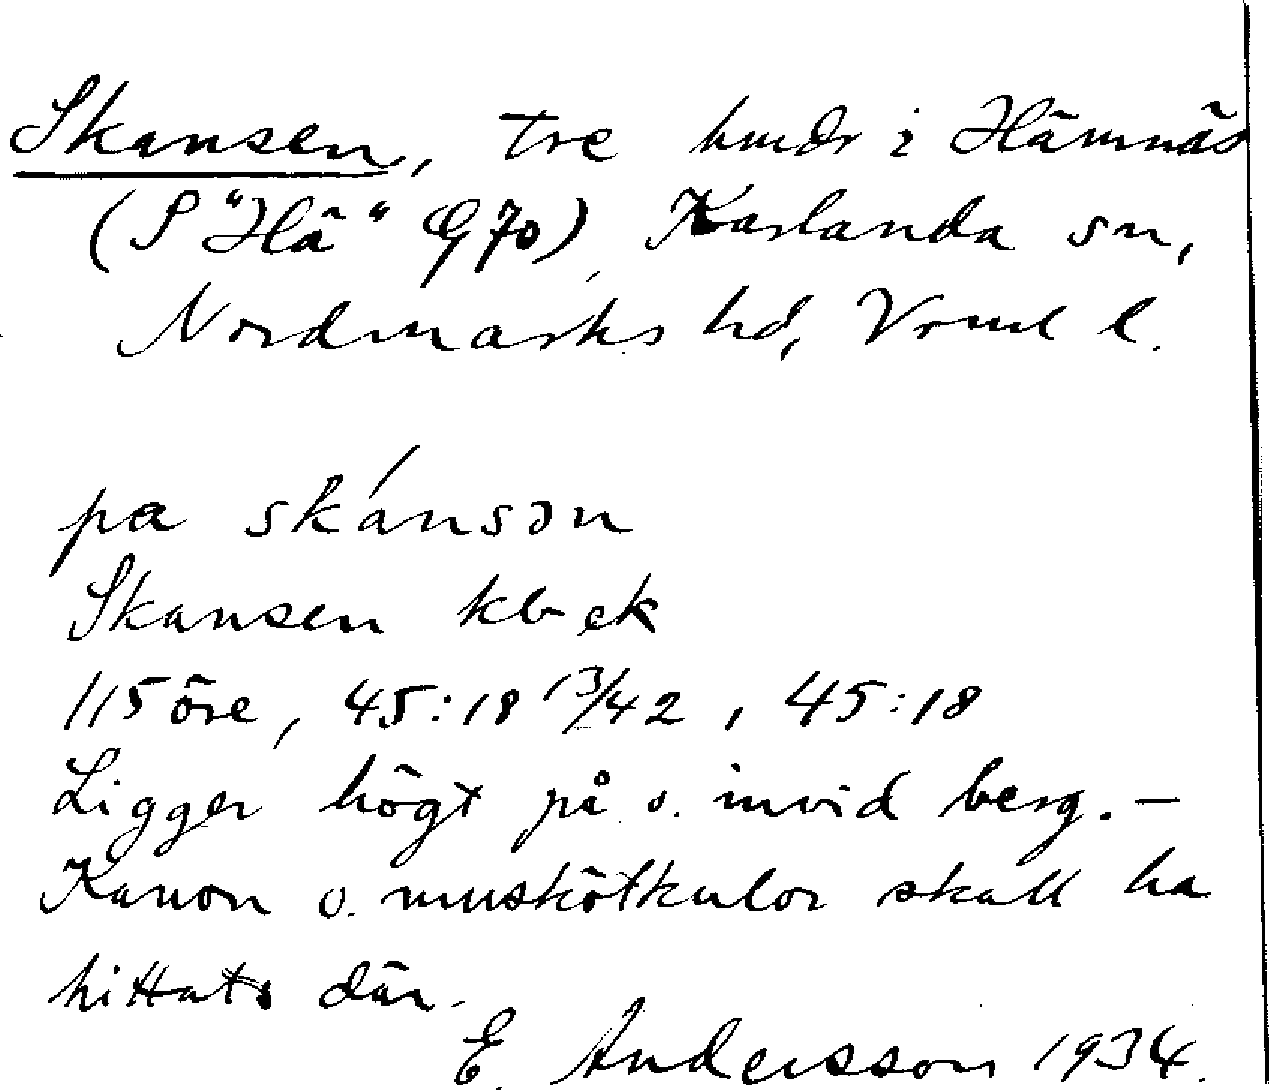 Skansen, tre hmdr i Hämnäs
(S "Hä" G 70), Karlanda sn,
Nordmarks hd, Vrml l.
pa skánsən
Skansen kb ek
115 öre, 45:18 13/42, 45:18
Ligger högt på o. invid berg. —
Kanon o. muskötkulor skall ha
hittats där.
E. Andersson 1934.